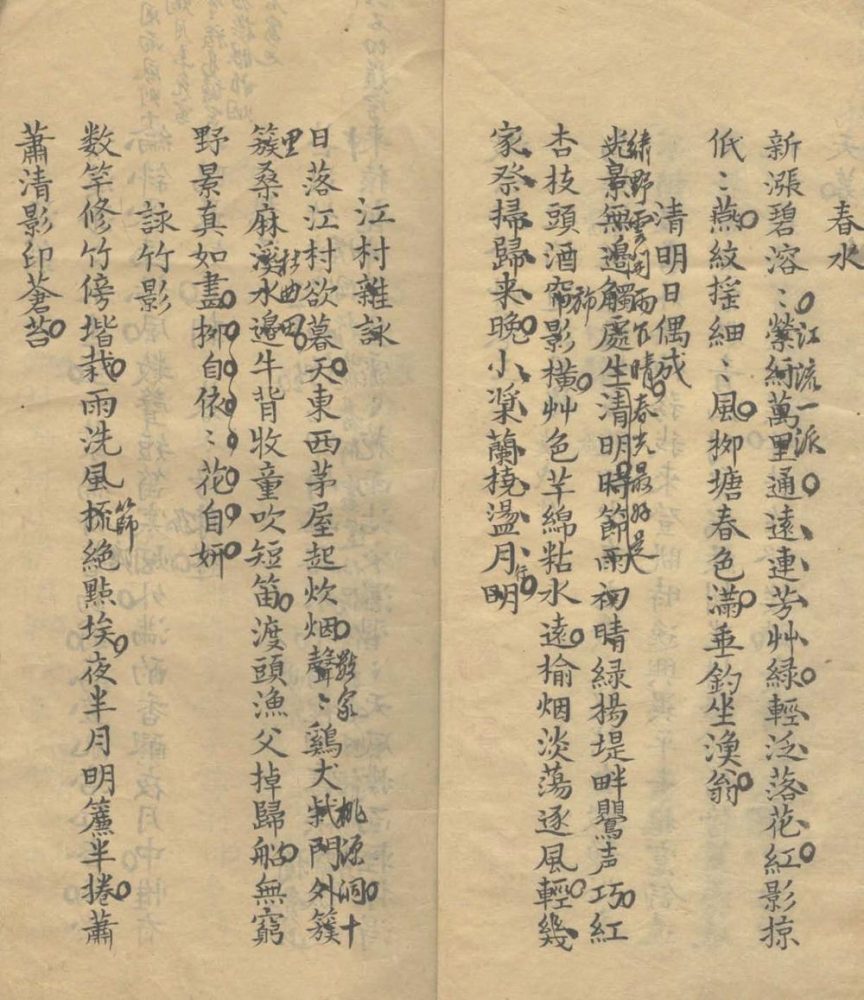 春水
新漲碧溶〻縈紆萬里通遠連芳艸綠輕泛落花紅影掠
江流一派
低〻燕紋揺細〻風柳塘春色滿垂釣坐漁翁
清明日偶成
綠野雲開雨乍晴春光最好是
光景無邊觸處生清明時節雨初晴緑楊堤畔鸎声巧紅
杏枝頭酒帘影橫艸色芊綿粘水遠榆烟淡蕩逐風輕幾
旆
家祭掃歸来晚小槳蘭橈盪月明
行
江村雜詠
日落江村欲暮天東西茅屋起炊烟聲〻鷄犬柴門外簇
數家
桃源洞十
里
簇桑麻溪水邊牛背牧童吹短笛渡頭漁父掉歸船無窮
曲
野景真如畫柳自依〻花自妍
詠竹影
数竿修竹傍堦栽雨洗風梳絕點埃夜半月明簾半捲蕭
篩
蕭清影印蒼苔